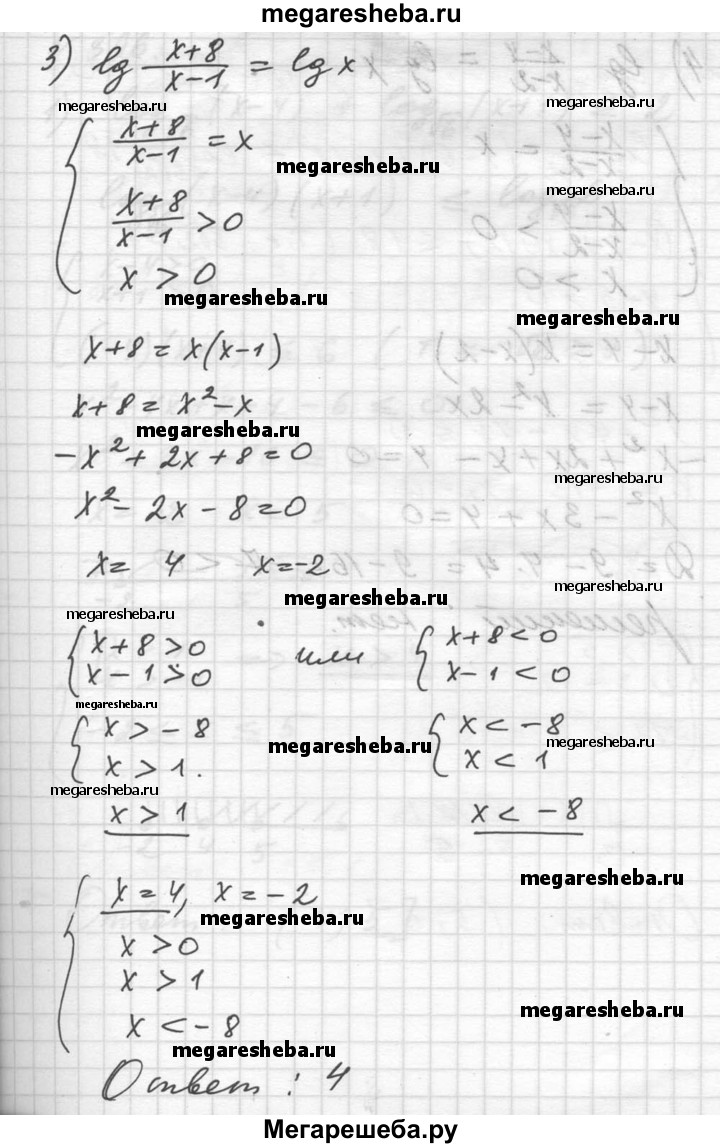 megaresheba.ru
3) lg x+8/x-1 = lg x
megaresheba.ru megaresheba.ru
x+8/x-1 = x
megaresheba.ru
megaresheba.ru
x+8/x-1 > 0
x > 0
megaresheba.ru
megaresheba.ru
x+8 = x(x-1)
x+8 = x²-x
megaresheba.ru
-x²+2x+8=0
megaresheba.ru
x²-2x-8=0
x= 4 x=-2
megaresheba.ru
megaresheba.ru
{x+8>0 или {x+8<0
x-1>0 x-1<0
megaresheba.ru
{x>-8 {x<-8
megaresheba.ru megaresheba.ru
x>1. x<1
megaresheba.ru
x>1 x<-8
megaresheba.ru
x=4, x=-2
megaresheba.ru
x>0
x>1
megaresheba.ru
x<-8
megaresheba.ru
Ответ: 4
Мегарешеба.ру